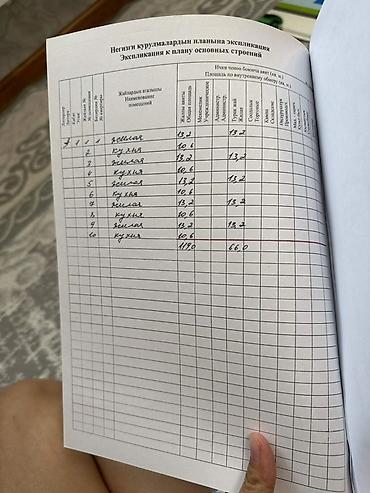 Негизги курулмалардын планына экспликация
Экспликация к плану основных строений
Ички ченөө боюнча аянт (кв. м.)
Площадь по внутреннему обмеру (кв. м.)
Кайлардын аталышы
Наименование помещений
Жалпы аянты
Общая площадь
Мекемелик
Учрежденческие
Администр.
Администр.
Турак жай
Жилая
Соодалык
Торговые
Складские
А 1 1 1 жилая 13,2 13,2
2 кухня 10,6
3 жилая 13,2 13,2
4 кухня 10,6
5 жилая 13,2 13,2
6 кухня 10,6
7 жилая 13,2 13,2
8 кухня 10,6
9 жилая 13,2 13,2
10 кухня 10,6
119,0 66,0